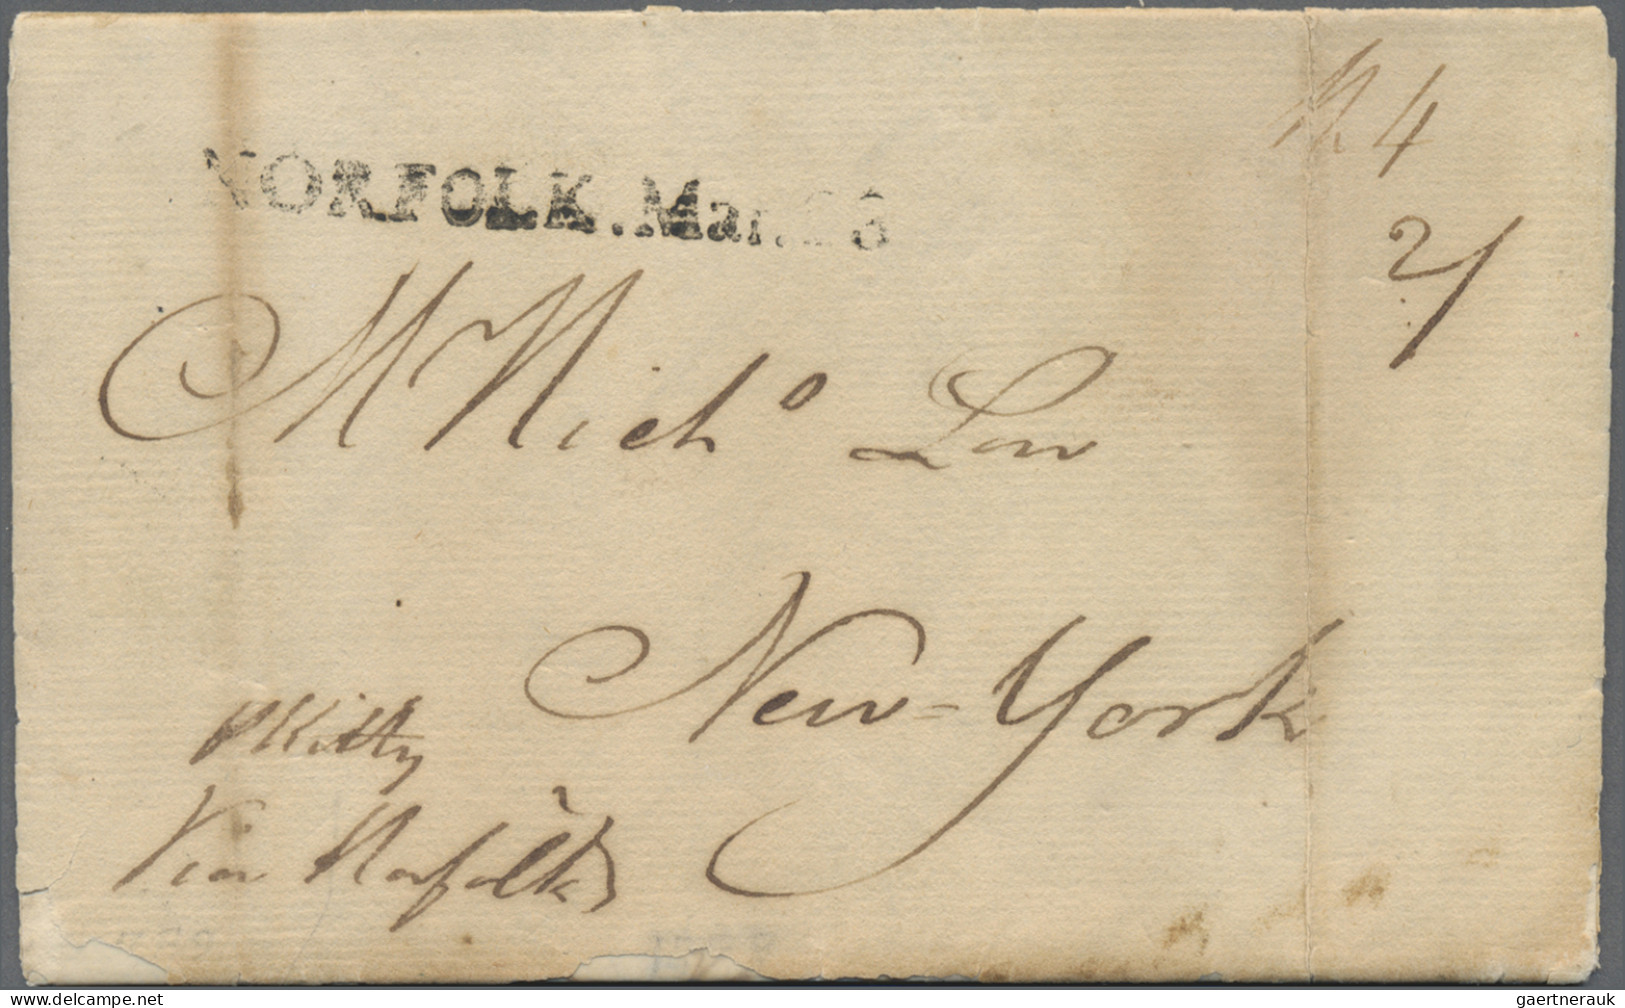 4
NORFOLK. Mar.
2/
Mr Nicho Low
New-York
P Kitty
Via Norfolk
delcampe.net
gaertnerauk